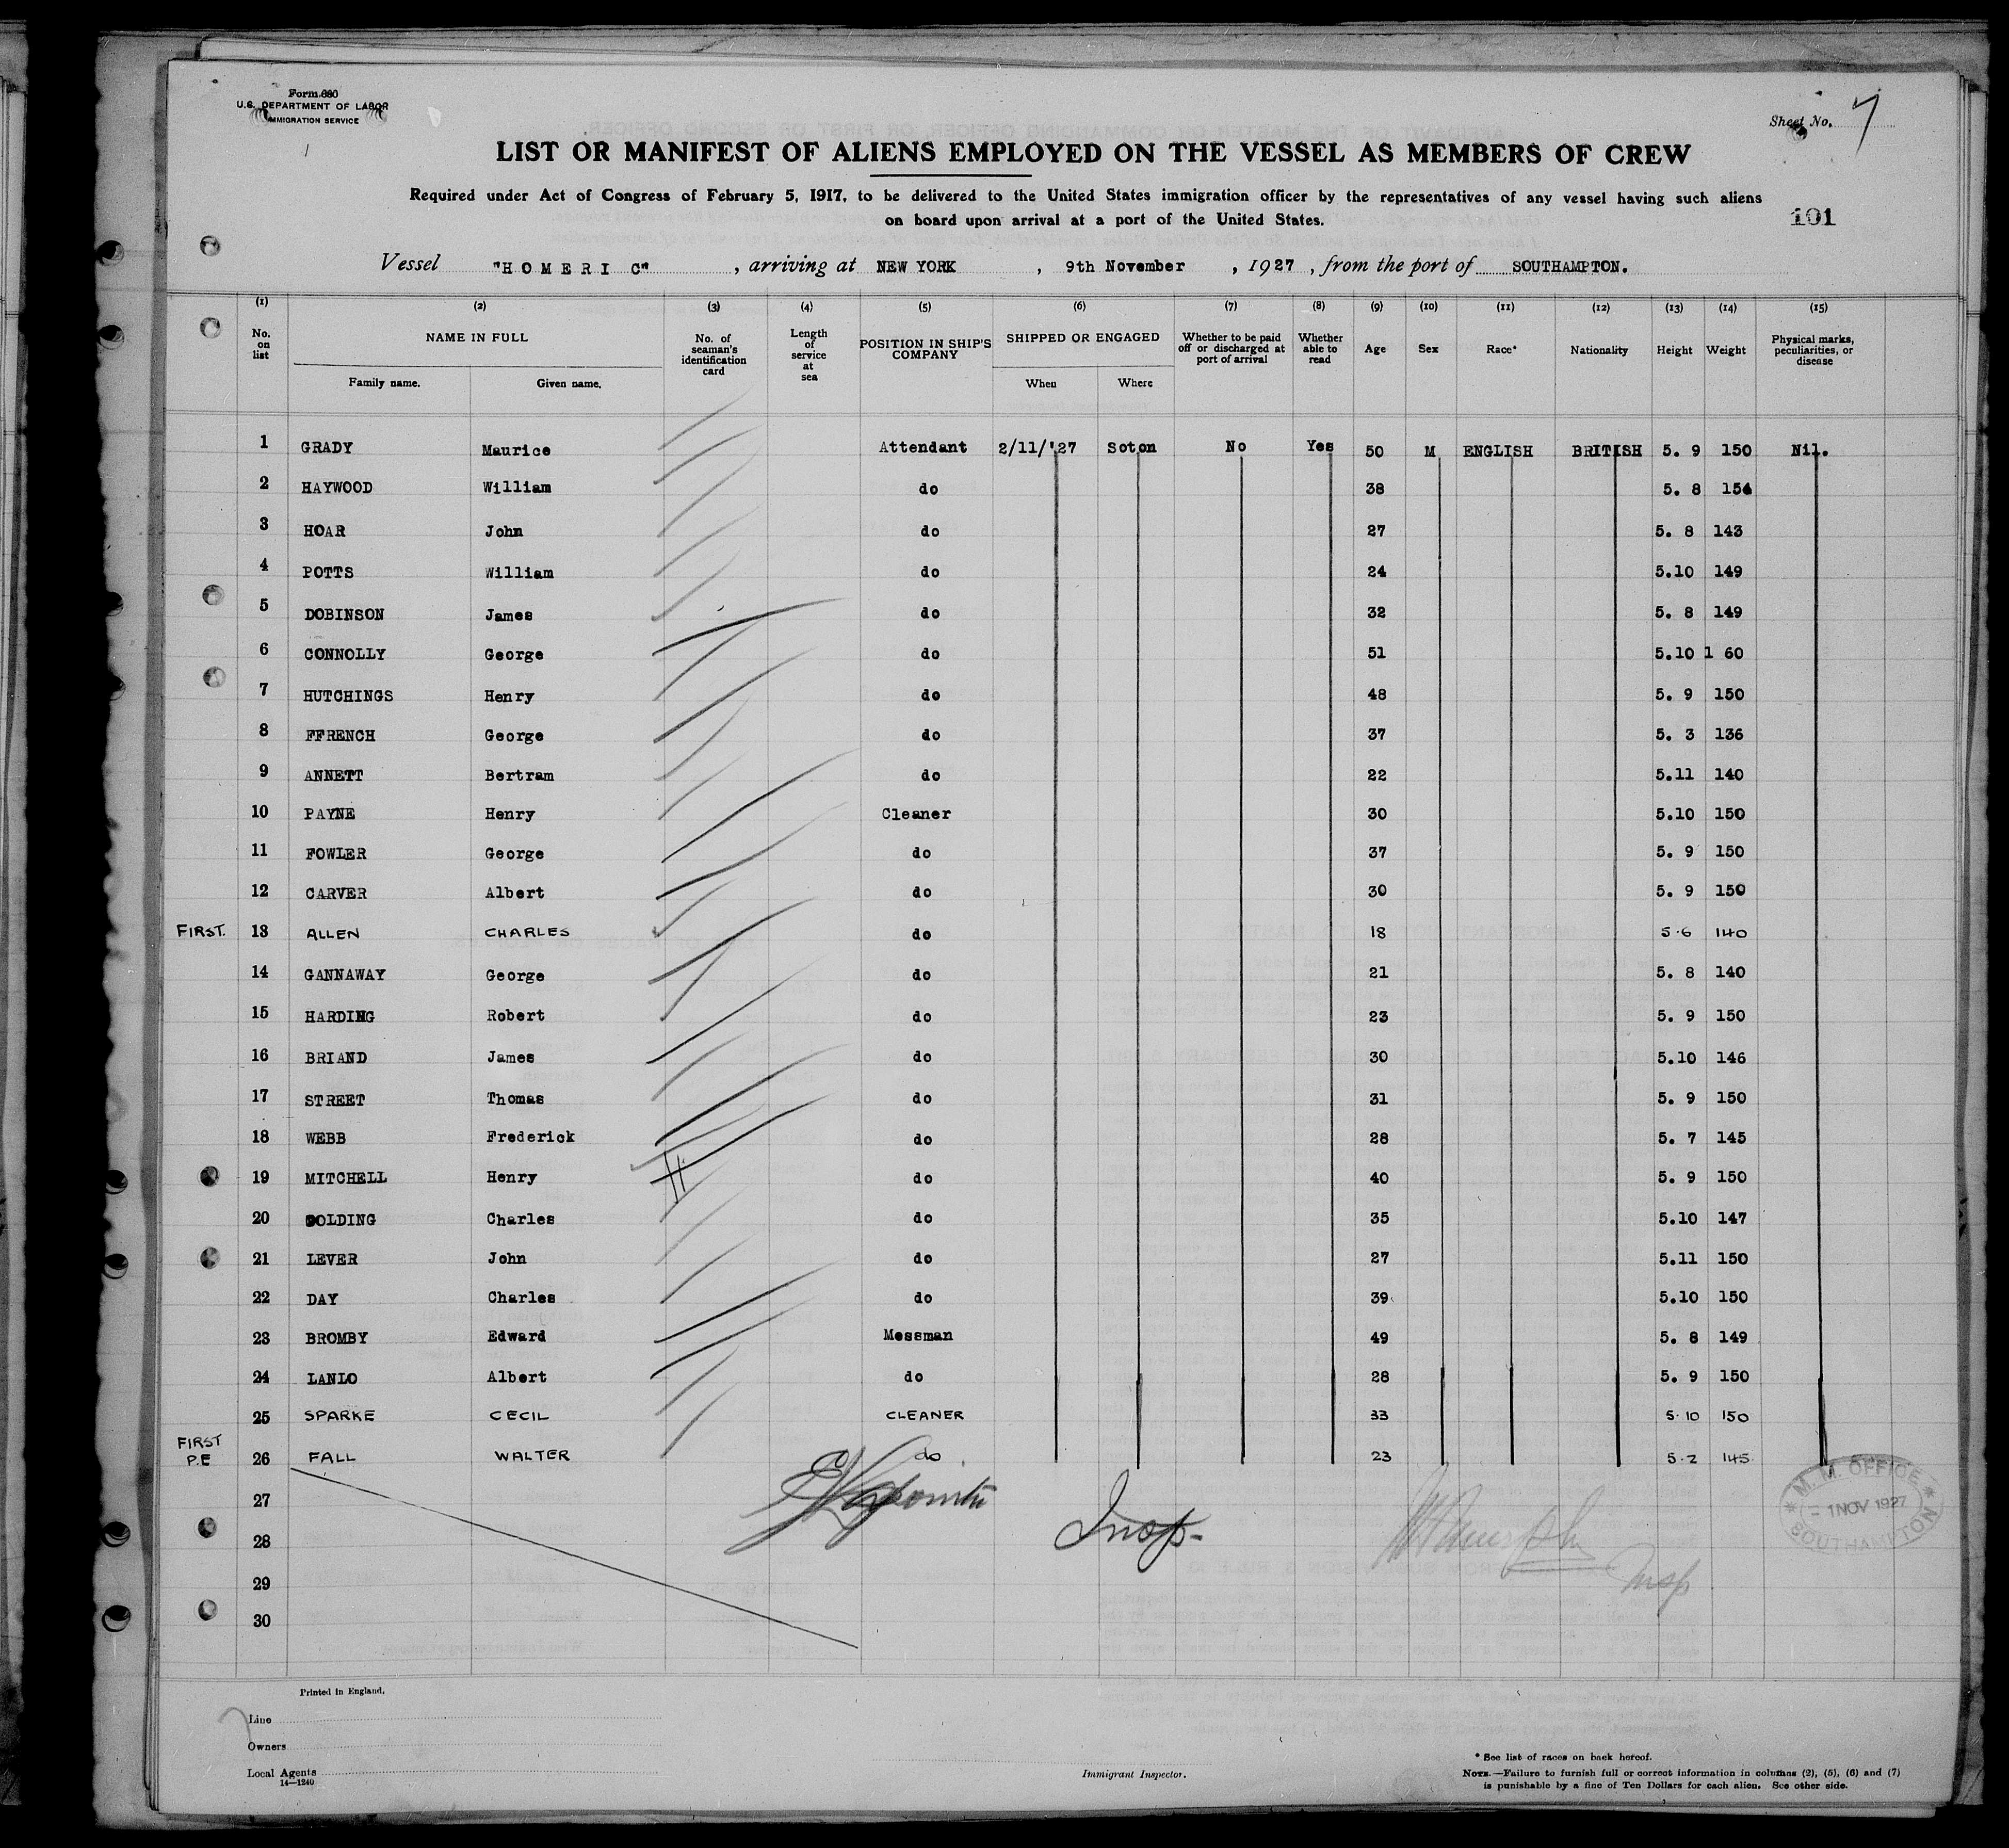 Form 680
U.S. DEPARTMENT OF LABOR
IMMIGRATION SERVICE
Sheet No. 7
LIST OR MANIFEST OF ALIENS EMPLOYED ON THE VESSEL AS MEMBERS OF CREW
Required under Act of Congress of February 5, 1917, to be delivered to the United States immigration officer by the representatives of any vessel having such aliens
on board upon arrival at a port of the United States.
101
Vessel "HOMERIC", arriving at NEW YORK, 9th November, 1927, from the port of SOUTHAMPTON.
(1) (2) (3) (4) (5) (6) (7) (8) (9) (10) (11) (12) (13) (14) (15)
No. on list NAME IN FULL Family name. Given name. No. of seaman's identification card Length of service at sea POSITION IN SHIP'S COMPANY SHIPPED OR ENGAGED When Where Whether to be paid off or discharged at port of arrival Whether able to read Age Sex Race* Nationality Height Weight Physical marks, peculiarities, or disease
1 GRADY Maurice Attendant 2/11/'27 Soton No Yes 50 M ENGLISH BRITISH 5. 9 150 Nil.
2 HAYWOOD William do 38 5. 8 154
3 HOAR John do 27 5. 8 143
4 POTTS William do 24 5.10 149
5 DOBINSON James do 32 5. 8 149
6 CONNOLLY George do 51 5.10 1 60
7 HUTCHINGS Henry do 48 5. 9 150
8 FFRENCH George do 37 5. 3 136
9 ANNETT Bertram do 22 5.11 140
10 PAYNE Henry Cleaner 30 5.10 150
11 FOWLER George do 37 5. 9 150
12 CARVER Albert do 30 5. 9 150
FIRST. 13 ALLEN CHARLES do 18 5.6 140
14 GANNAWAY George do 21 5. 8 140
15 HARDING Robert do 23 5. 9 150
16 BRIAND James do 30 5.10 146
17 STREET Thomas do 31 5. 9 150
18 WEBB Frederick do 28 5. 7 145
19 MITCHELL Henry do 40 5. 9 150
20 GOLDING Charles do 35 5.10 147
21 LEVER John do 27 5.11 150
22 DAY Charles do 39 5.10 150
23 BROMBY Edward Messman 49 5. 8 149
24 LANLO Albert do 28 5. 9 150
25 SPARKE CECIL CLEANER 33 5.10 150
FIRST P.E 26 FALL WALTER do 23 5.2 145
27
28
29
30
Insp.
Insp
M. M. OFFICE
1 NOV 1927
SOUTHAMPTON
Printed in England.
7
Line
Owners
Local Agents
14—1240
Immigrant Inspector.
* See list of races on back hereof.
NOTE.—Failure to furnish full or correct information in columns (2), (5), (6) and (7)
is punishable by a fine of Ten Dollars for each alien. See other side.